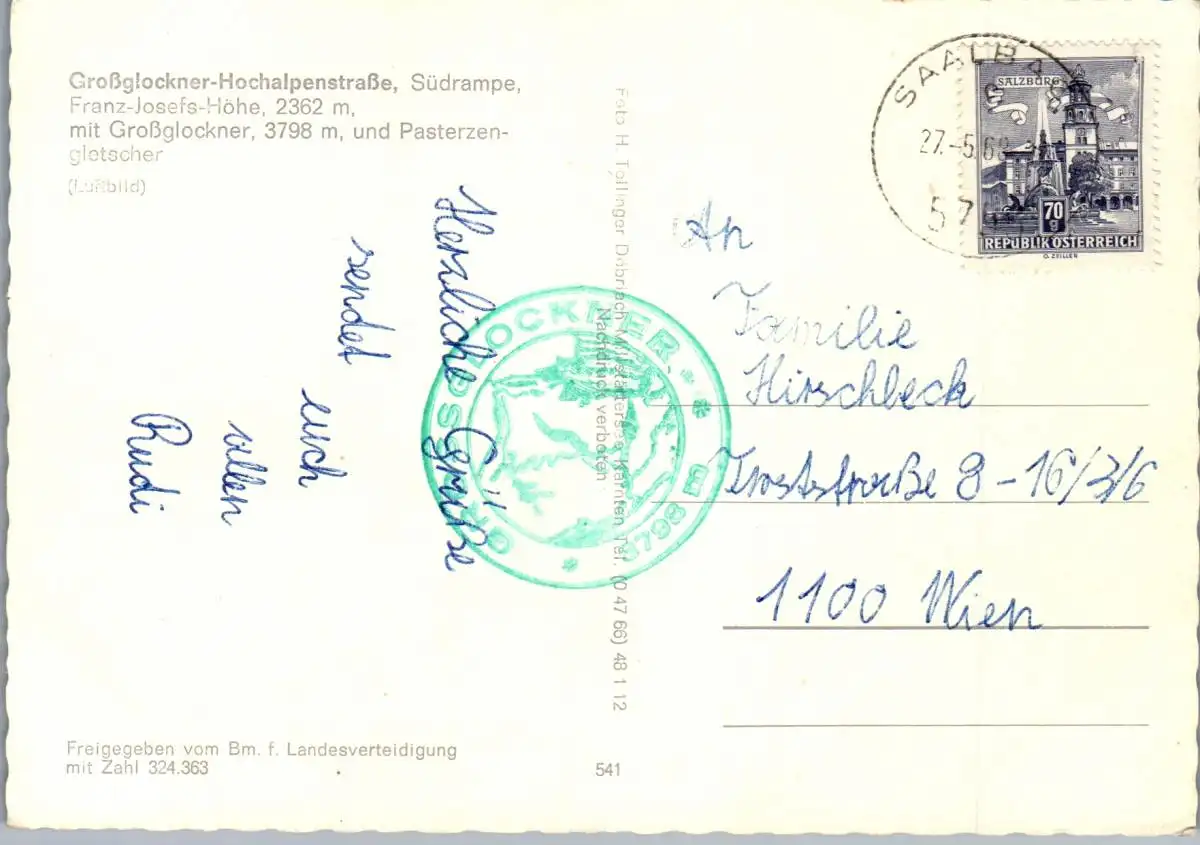 Großglockner-Hochalpenstraße, Südrampe,
Franz-Josefs-Höhe, 2362 m,
mit Großglockner, 3798 m, und Pasterzen-
gletscher
(Luftbild)
Herzliche Grüße
sendet
euch
allen
Rudi
Freigegeben vom Bm. f. Landesverteidigung
mit Zahl 324.363
GROSSGLOCKNER
3798 m
Foto H. Tollinger Döbriach Millstättersee Kärnten Tel. (0 47 66) 48 1 12
Nachdruck verboten
541
SAALBA
27.-5.68
57
SALZBURG
70
g
REPUBLIK ÖSTERREICH
O. ZEILLER
An
Familie
Hirschbeck
8-16/3/6
1100 Wien